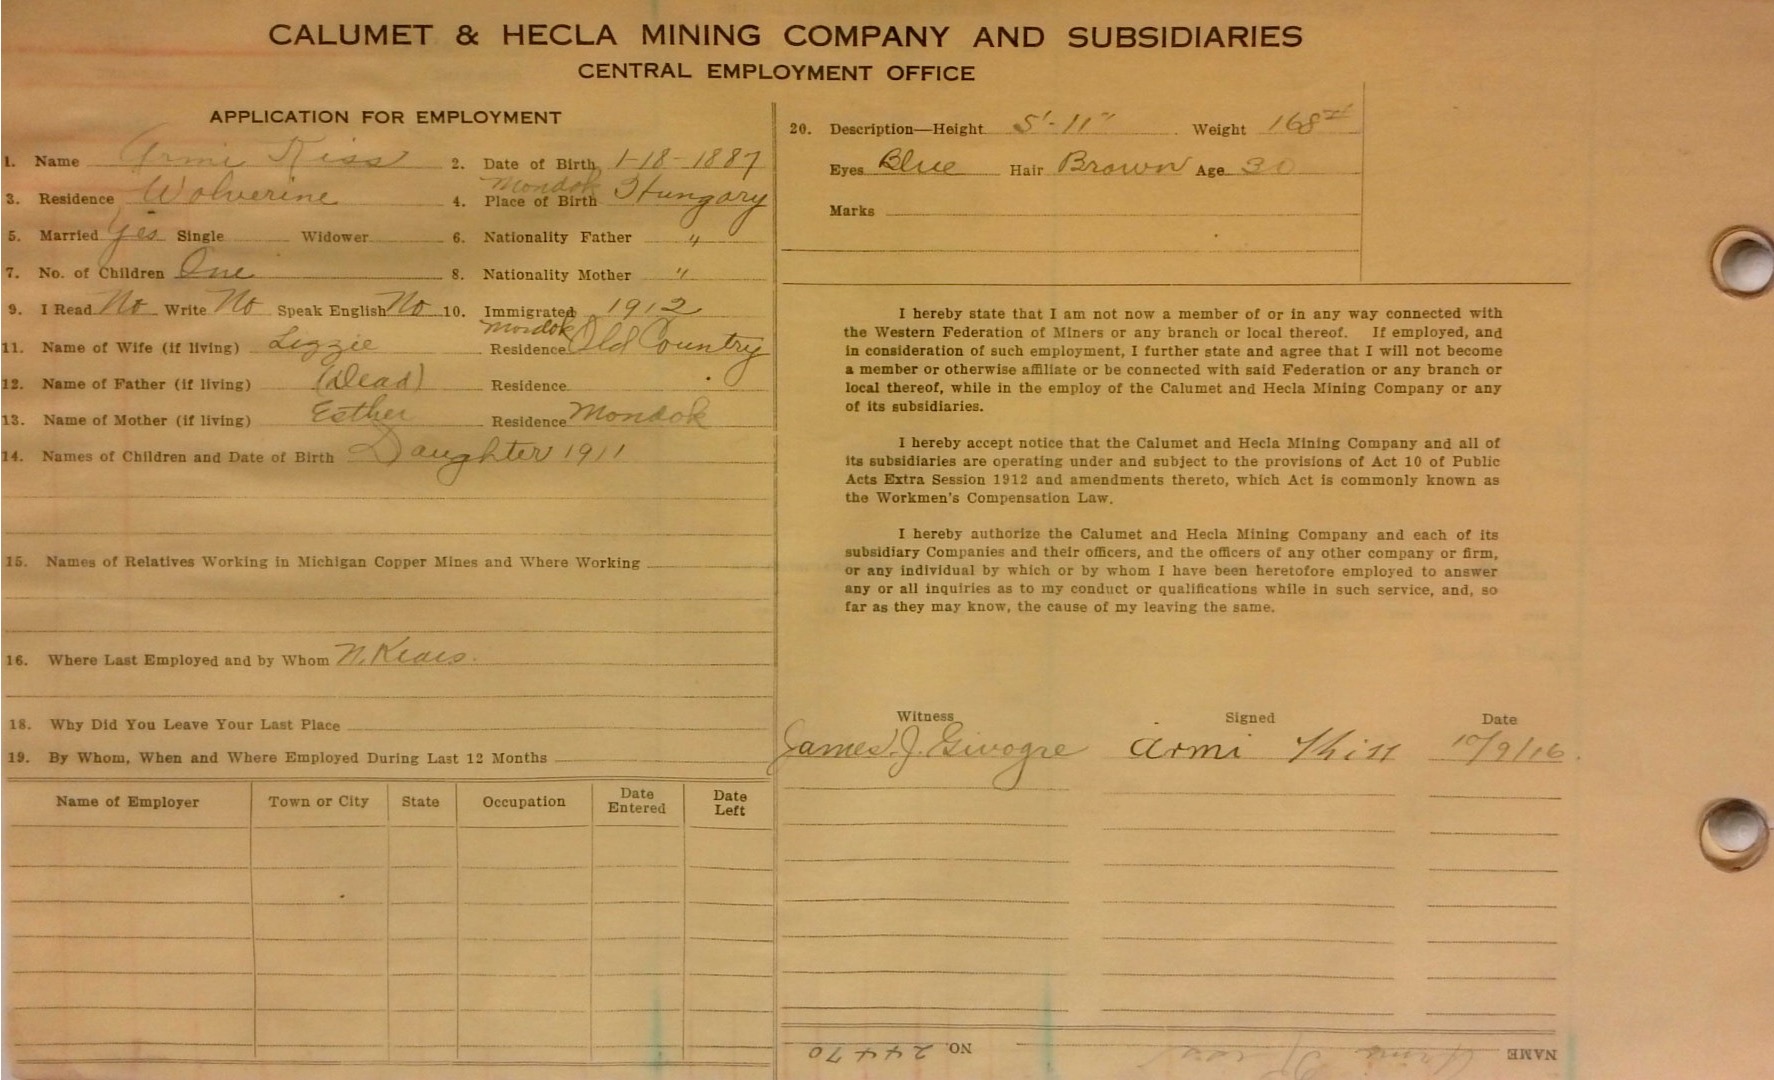 CALUMET & HECLA MINING COMPANY AND SUBSIDIARIES
CENTRAL EMPLOYMENT OFFICE
APPLICATION FOR EMPLOYMENT
1. Name Armi Kiss 2. Date of Birth 1-18-1887
3. Residence Wolverine 4. Place of Birth Mondok Hungary
5. Married Yes Single Widower 6. Nationality Father "
7. No. of Children One 8. Nationality Mother "
9. I Read No Write No Speak English No 10. Immigrated 1912
11. Name of Wife (if living) Lizzie Residence Mondok Old Country
12. Name of Father (if living) (Dead) Residence
13. Name of Mother (if living) Esther Residence Mondok
14. Names of Children and Date of Birth Daughter 1911
15. Names of Relatives Working in Michigan Copper Mines and Where Working
16. Where Last Employed and by Whom N.
18. Why Did You Leave Your Last Place
19. By Whom, When and Where Employed During Last 12 Months
Name of Employer Town or City State Occupation Date Entered Date Left
20. Description—Height 5'-11" Weight 168#
Eyes Blue Hair Brown Age 30
Marks
I hereby state that I am not now a member of or in any way connected with
the Western Federation of Miners or any branch or local thereof. If employed, and
in consideration of such employment, I further state and agree that I will not become
a member or otherwise affiliate or be connected with said Federation or any branch or
local thereof, while in the employ of the Calumet and Hecla Mining Company or any
of its subsidiaries.
I hereby accept notice that the Calumet and Hecla Mining Company and all of
its subsidiaries are operating under and subject to the provisions of Act 10 of Public
Acts Extra Session 1912 and amendments thereto, which Act is commonly known as
the Workmen's Compensation Law.
I hereby authorize the Calumet and Hecla Mining Company and each of its
subsidiary Companies and their officers, and the officers of any other company or firm,
or any individual by which or by whom I have been heretofore employed to answer
any or all inquiries as to my conduct or qualifications while in such service, and, so
far as they may know, the cause of my leaving the same.
Witness Signed Date
James J. Givogre Armi Kiss 10/9/16.
NAME Armi Kiss NO. 24470